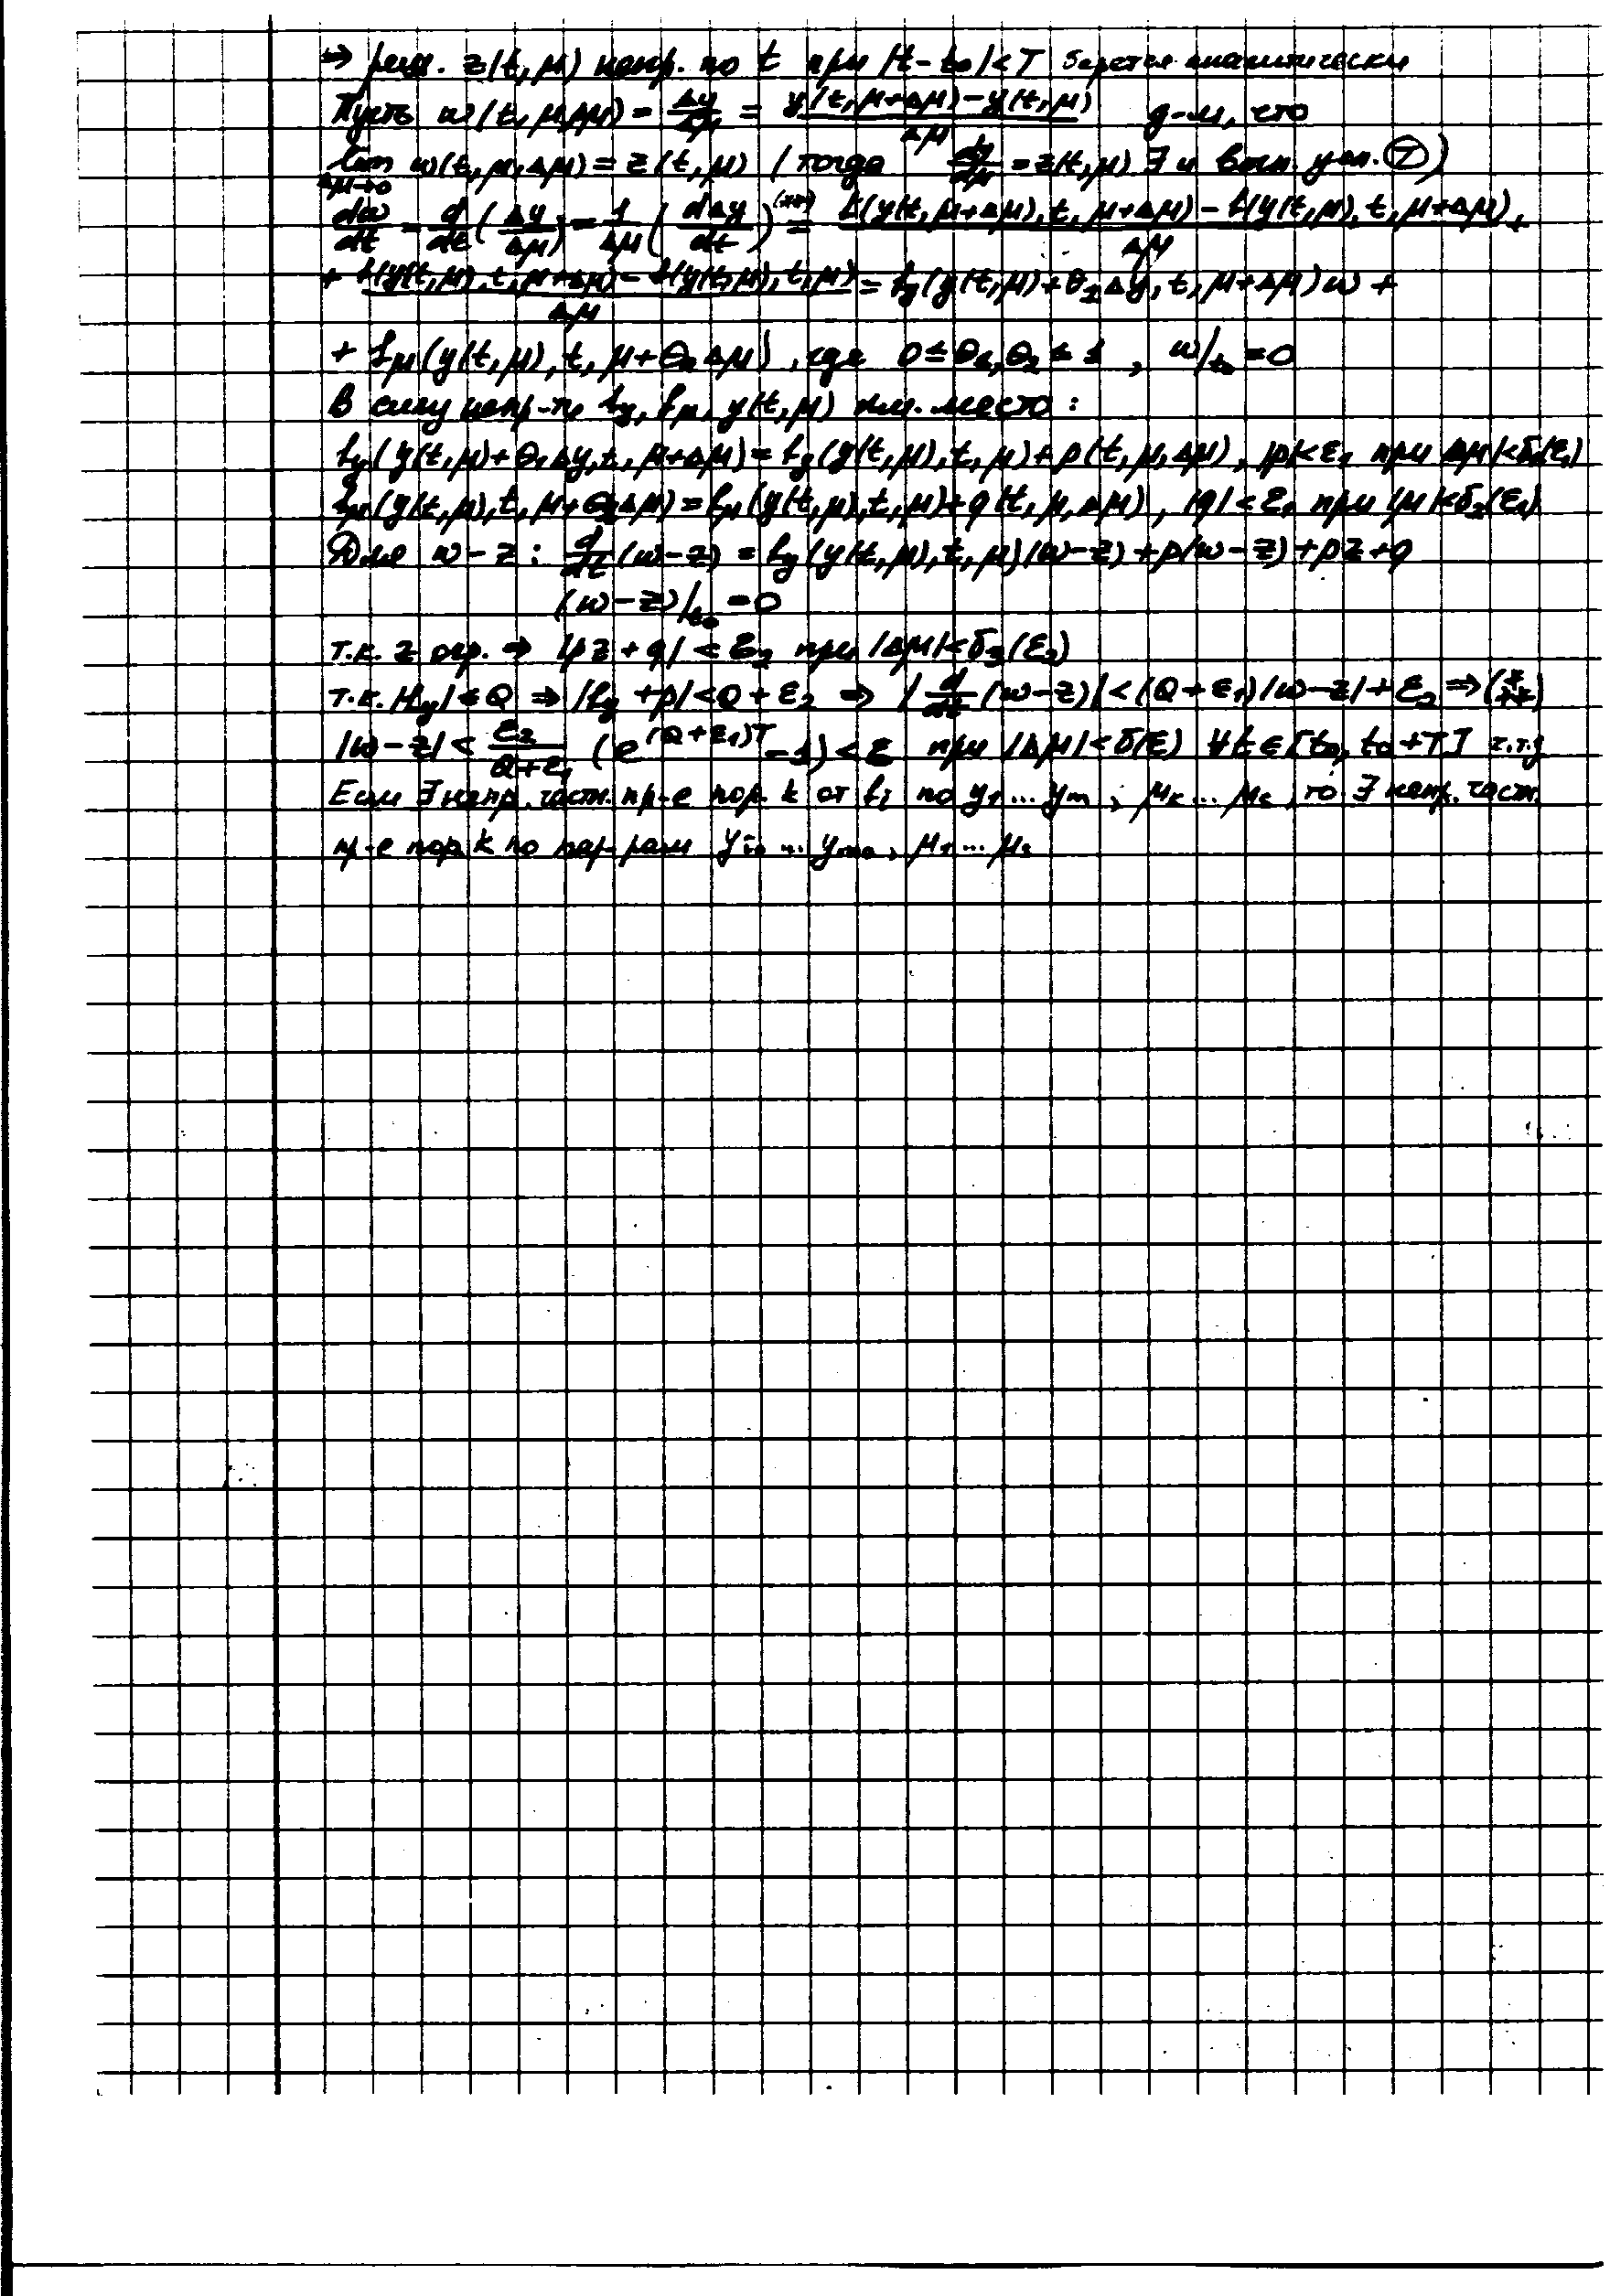 ⇒ реш. z(t,μ) непр. по t при |t-t₀|<T берется аналитически
Пусть w(t,μ,Δμ) = Δy/Δμ = (y(t,μ+Δμ)-y(t,μ))/Δμ д-м, что
lim_{Δμ→0} w(t,μ,Δμ) = z(t,μ) (тогда dy/dμ = z(t,μ) ∃ и вып. усл. Ⓣ)
dw/dt = d/dt(Δy/Δμ) = 1/Δμ(dΔy/dt) (***)= (f(y(t,μ+Δμ),t,μ+Δμ)-f(y(t,μ),t,μ+Δμ))/Δμ +
+ (f(y(t,μ),t,μ+Δμ)-f(y(t,μ),t,μ))/Δμ = f_y(y(t,μ)+θ₁Δy,t,μ+Δμ)w +
+ f_μ(y(t,μ),t,μ+θ₂Δμ), где 0≤θ₁,θ₂≤1, w|_{t₀}=0
В силу непр-ти f_y, f_μ, y(t,μ) им. место:
f_y(y(t,μ)+θ₁Δy,t,μ+Δμ) = f_y(y(t,μ),t,μ)+p(t,μ,Δμ), |p|<ε₁ при |Δμ|<δ₁(ε₁)
f_μ(y(t,μ),t,μ+θ₂Δμ) = f_μ(y(t,μ),t,μ)+q(t,μ,Δμ), |q|<ε₁ при |μ|<δ₂(ε₁)
Для w-z: d/dt(w-z) = f_y(y(t,μ),t,μ)(w-z)+p(w-z)+pz+q
(w-z)|_{t₀}=0
т.к. z огр. ⇒ |pz+q|<ε₂ при |Δμ|<δ₃(ε₂)
т.к. |f_y|≤Q ⇒ |f_y+p|<Q+ε₂ ⇒ |d/dt(w-z)|<(Q+ε₁)|w-z|+ε₂ ⇒ (***)
|w-z| < ε₂/(Q+ε₁) (e^{(Q+ε₁)T}-1)<ε при |Δμ|<δ(ε) ∀t∈[t₀,t₀+T] ч.т.д
Если ∃ непр. части. пр-е пор. k от f_i по y₁...y_m, μ₁...μ_s, то ∃ непр. част.
пр-е пор. k по пар-рам y₁₀...y_{m0}, μ₁...μ_s